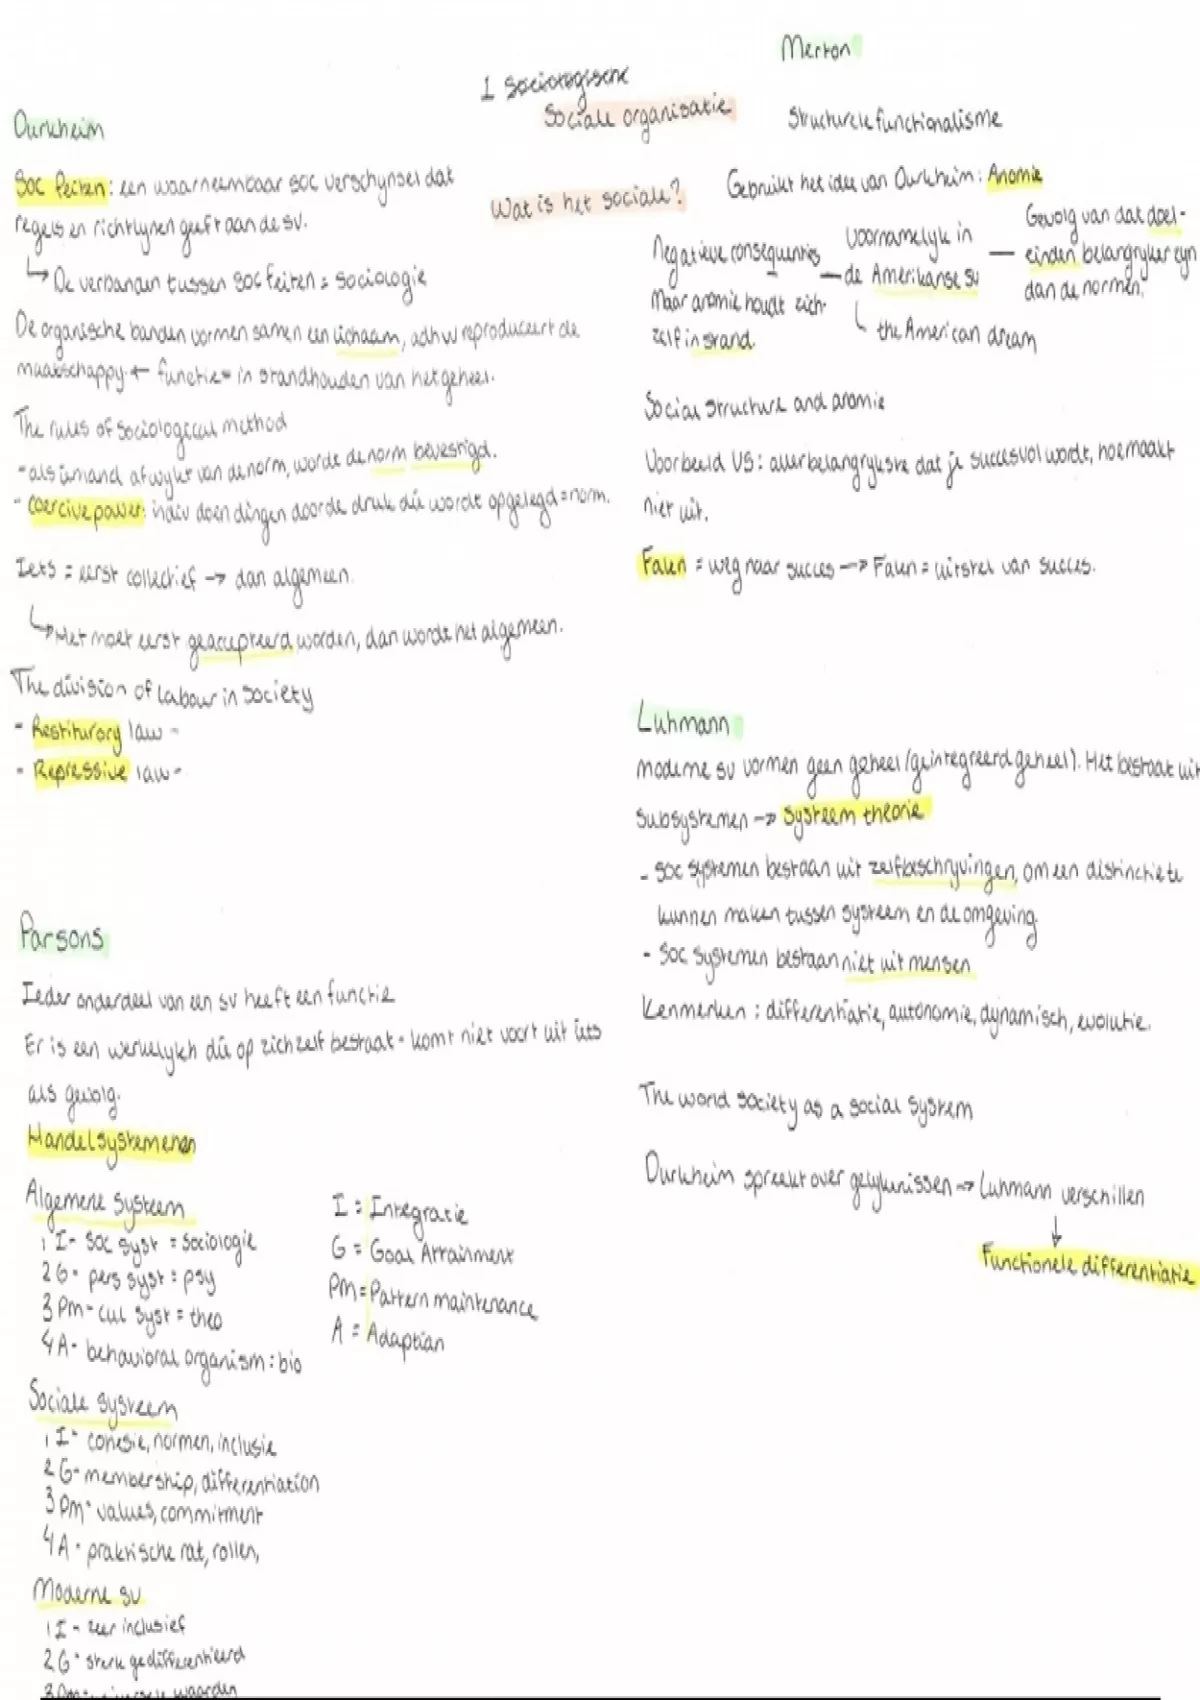 1 Sociologische
Sociale organisatie
Wat is het sociale?
Durkheim
Soc feiten: een waarneembaar soc verschijnsel dat
regels en richtlijnen geeft aan de sv.
↳ De verbanden tussen soc feiten = sociologie
De organische banden vormen samen een lichaam, adhv reproduceert de
maatschappij ← functie = in standhouden van het geheel.
The rules of sociological method
- als iemand afwijkt van de norm, wordt de norm bevestigd.
- coercive power: indiv doen dingen door de druk die wordt opgelegd = norm.
Iets = eerst collectief → dan algemeen.
↳ Het moet eerst geaccepteerd worden, dan wordt het algemeen.
The division of labour in society
- Restitutory law -
- Repressive law -
Parsons
Ieder onderdeel van een sv heeft een functie
Er is een werkelijkh die op zichzelf bestaat - komt niet voort uit iets
als gevolg.
Handelsystemen
Algemene systeem
1 I - soc syst = sociologie
2 G - pers syst = psy
3 Pm - cul syst = theo
4 A - behavioral organism: bio
I = Integratie
G = Goal Attainment
Pm = Pattern maintenance
A = Adaption
Sociale systeem
1 I - cohesie, normen, inclusie
2 G - membership, differentiation
3 Pm - values, commitment
4 A - praktische rat, rollen,
Moderne sv
1 I - zeer inclusief
2 G - sterk gedifferentieerd
3 Pm - waarden
Merton
Structurele functionalisme
Gebruikt het idee van Durkheim: Anomie
Negatieve consequenties
maar anomie houdt zich-
zelf in stand.
— Voornamelijk in
de Amerikanse sv
↳ the American dream
— Gevolg van dat doel-
einden belangrijker zijn
dan de normen.
Social structure and anomie
Voorbeeld US: aller belangrijkste dat je succesvol wordt, hoe maakt
niet uit.
Falen = weg naar succes → Falen = uitstel van succes.
Luhmann
moderne sv vormen geen geheel (geïntegreerd geheel). Het bestaat uit
subsystemen → systeem theorie
- soc systemen bestaan uit zelfbeschrijvingen, om een distinctie te
kunnen maken tussen systeem en de omgeving.
- soc systemen bestaan niet uit mensen
Kenmerken: differentiatie, autonomie, dynamisch, evolutie.
The world society as a social system
Durkheim spreekt over gelijkenissen → Luhmann verschillen
↓
Functionele differentiatie